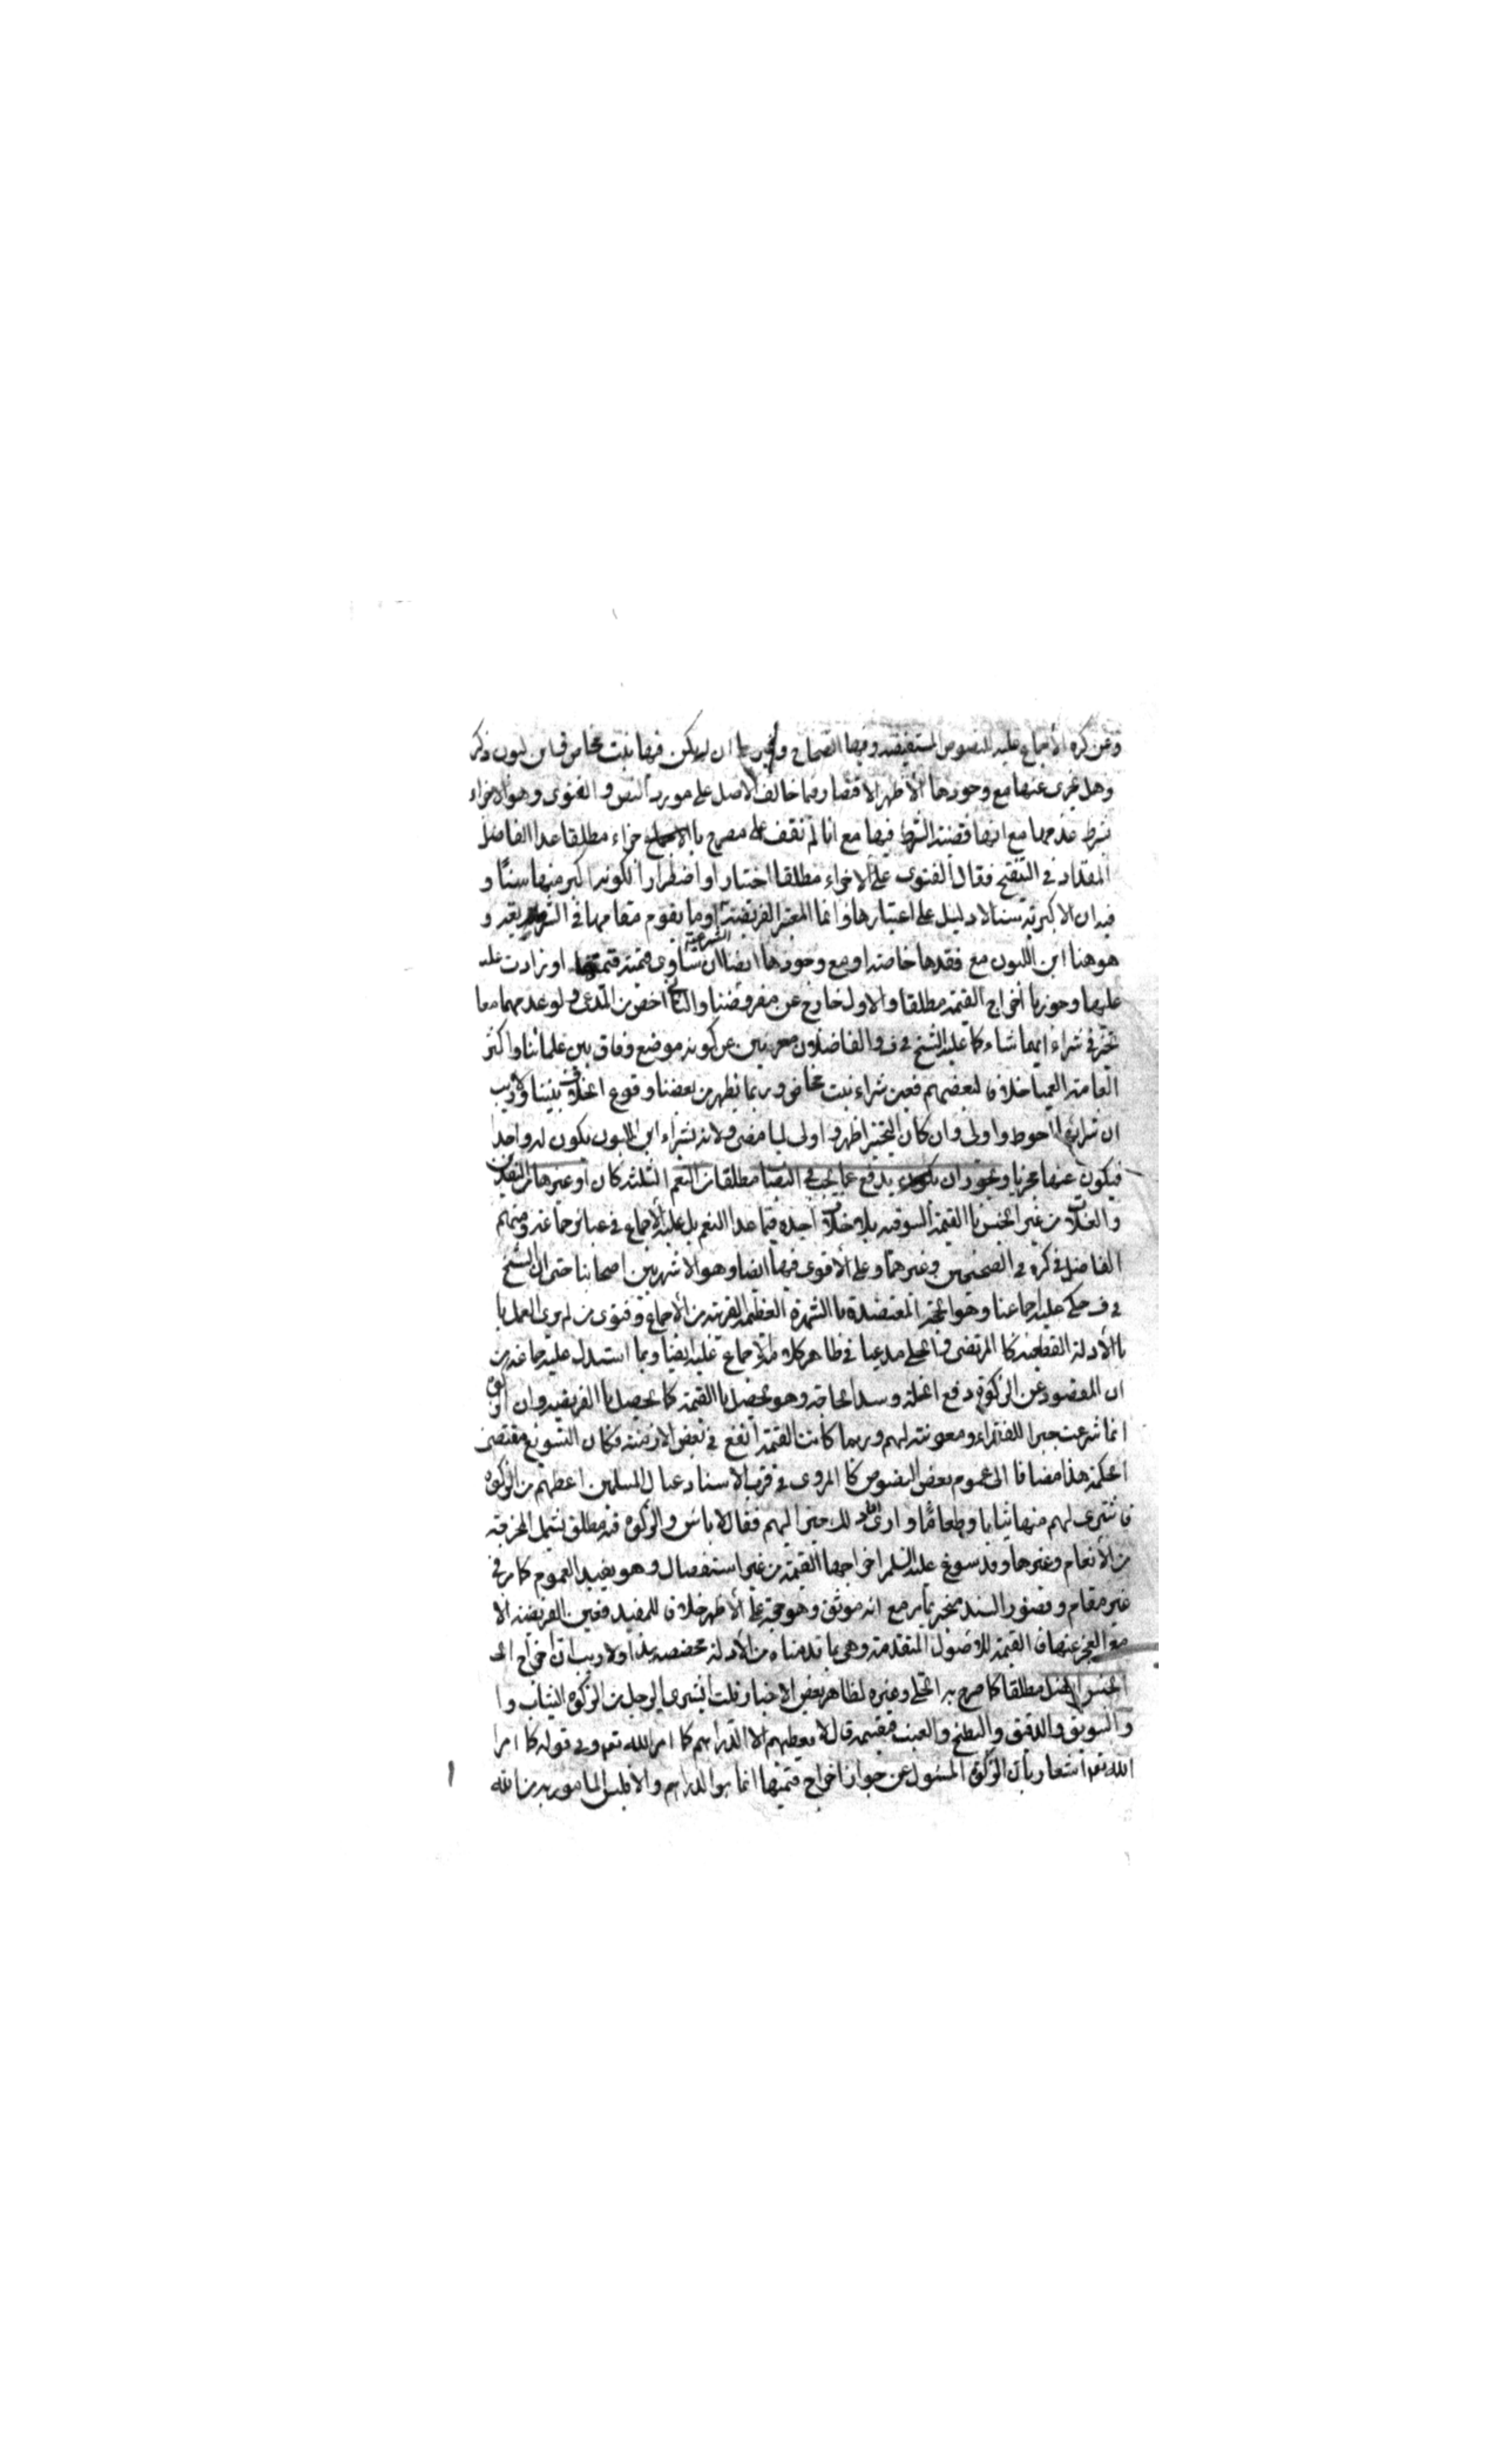 وعن كره الأجماع عليه للنصوص المستفيضه وفيها الصحاح وغيرها ان لم يكن فيها بنت مخاض فابن لبون ذكر
وهل يجزى عنها مع وجودها الأظهر الاقتصار فيما خالف الاصل على مورد النص و الفتوى وهو الاجزاء
بشرط عدمها مع انها قضية الشرط فيها مع انا لم نقف على مصرح بالاجزاء مطلقا عدا الفاضل
المقداد في التنقيح فقال الفتوى على الاجزاء مطلقا اختيارا او اضطرارا لكونه اكبر منها سنًا و
فيه ان الاكبرية سنا لا دليل على اعتبارها وانما المعتبر الفريضة او ما يقوم مقامها في الشريعه و
هو هنا ابن اللبون مع فقدها خاصة او مع وجودها ايضا ان ساوى قيمته قيمتها الشرعية او زادت عليه
عليها وجوزنا اخراج القيمة مطلقا والاول خارج عن مفروضنا والثاني اخص من المدعى ولو عدمهما معا
تخير في شراء ايهما شاء كما عليه الشيخ في ف والفاضلان معربين عن كونه موضع وفاق بين علمائنا واكثر
العامة العميا خلاف لبعضهم فعين شراء بنت مخاض وربما يظهر من بعضنا وقوع الخلاف بيننا ولا ريب
ان شرائها احوط واولى وان كان التخيير اظهر و اولى لما مضى ولانه بشراء ابن اللبون يكون له واجدا
فيكون عنها مجزيا ويجوز ان يدفع عما يجب في النصب مطلقا من النعم الثلثه كان او غيرها من النقدين
والغلات من غير الجنس بالقيمة السوقيه بلا خلاف اجده فيما عدا النعم بل عليه الأجماع في عبائر جماعه ومنهم
الفاضل في كره في الصحيحين وغيرهما وعلى الأقوى فيها ايضا وهو الاشهر بين اصحابنا حتى ان الشيخ
في ف حكى عليه اجماعنا وهو الحجة المعتضدة بالشهرة العظيمة القريبه من الأجماع وفتوى من لم يرى العمل با
بالأدلة القطعيه كالمرتضى والحلى مدعيا في ظاهر كلامه الاجماع عليه ايضا وبما استدل عليه جماعه من
ان المقصود عن الزكوة دفع الخلة وسد الحاجة وهو يحصل بالقيمة كما يحصل بالفريضه وان الزكوة
انما شرعت جبرا للفقراء ومعونته لهم وربما كانت القيمة انفع في بعض الازمنه فكان التسويغ مقتضى
الحكمة هذا مضافا الى عموم بعض النصوص كالمروى في قرب الاسناد عيال المسلمين اعطيهم من الزكوة
فاشترى لهم منها ثيابا وطعامًا وارى ان ذلك خير لهم فقال لا باس والزكوة فيه مطلق يشمل المخرجة
من الأنعام وغيرها وقد سوغ عليه السلم اخراجها القيمة من غير استفصال وهو يفيد العموم كما مر في
غير مقام وقصور السند منجبر بما مر مع انه موثق وهو حجة على الأظهر خلاف للمفيد فعين الفريضة الا
مع العجز عنها فالقيمة للاصول المتقدمة وهى بما قدمناه من الأدلة مخصصه هذا ولا ريب ان اخراج الجـ
الجنس افضل مطلقا كما صرح به الحلى وغيره لظاهر بعض الاخبار قلت ايشترى الرجل من الزكوة الثياب و ا
والسويق والدقيق والبطيخ والعنب فيقسمه قال لا يعطيهم الا الدراهم كما امر الله تعه وفى قوله كما امرا
الله تعه اشعار بان الزكوة المسئول عن جواز اخراج قيمتها انما هو الدراهم والا فليس المامور به من الله